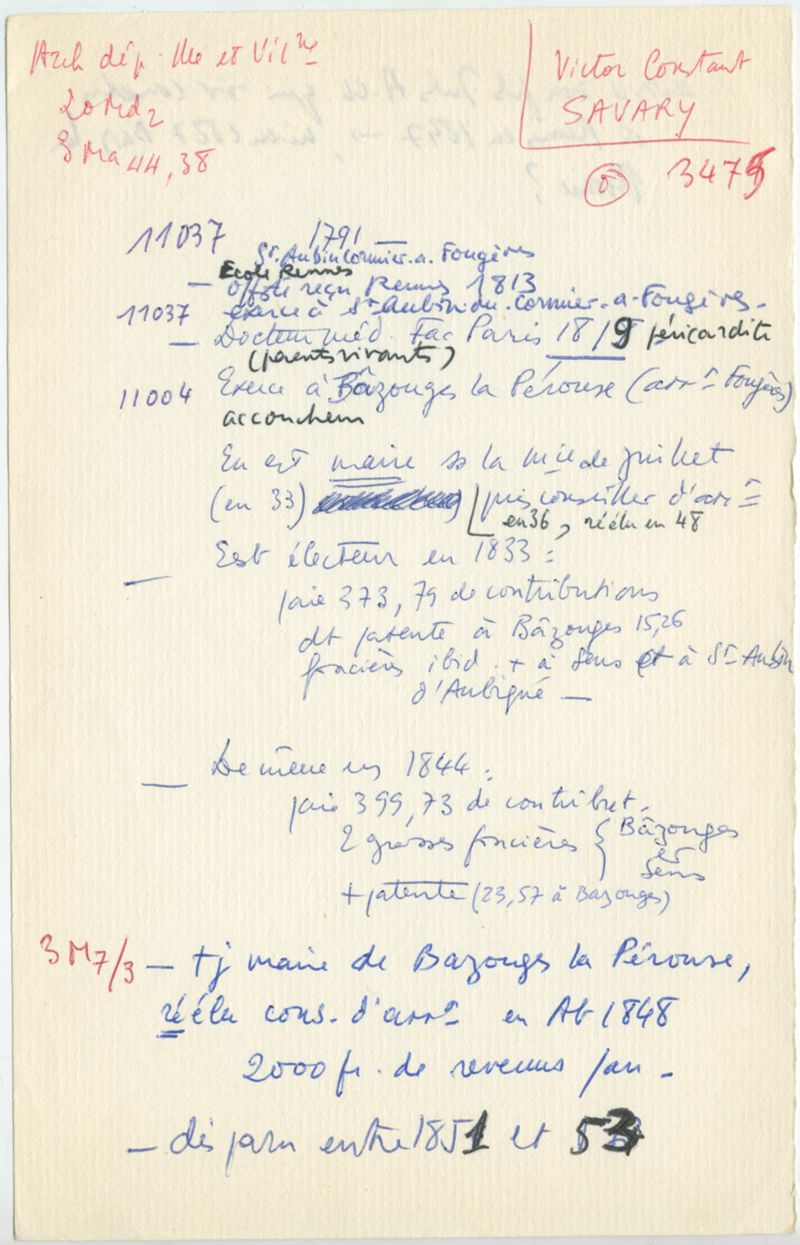 Arch dép. Ille et Vilne
20 Md2
3 Ma 44, 38
Victor Constant
SAVARY
3475
11037 1791 —
St. Aubin Cormier. a. Fougères
Ecole Rennes
— offté reçu Rennes 1813
11037 exerce à St Aubin du. Cormier. a. Fougères.
— Docteur méd. Fac Paris 1819 péricardite
(parents vivants)
11004 Exerce à Bâzouges la Pérouse (arrt Fougères)
accoucheur
En est maire ss la Mie de Juillet
(en 33) puis conseiller d'arrt
en 36, réélu en 48
— Est électeur en 1833 :
paie 373,79 de contributions
dt patente à Bâzouges 15,26
foncières ibid. + à Sens et à St Aubin
d'Aubigné —
— De même en 1844 :
paie 399,73 de contribut.
2 grosses foncières { Bâzouges
et
Sens
+ patente (23,57 à Bazouges)
3 M 7/3 — tj maire de Bazouges la Pérouse,
réélu cons. d'arrt en At 1848
2000 fr. de revenus / an —
— disparu entre 1851 et 53